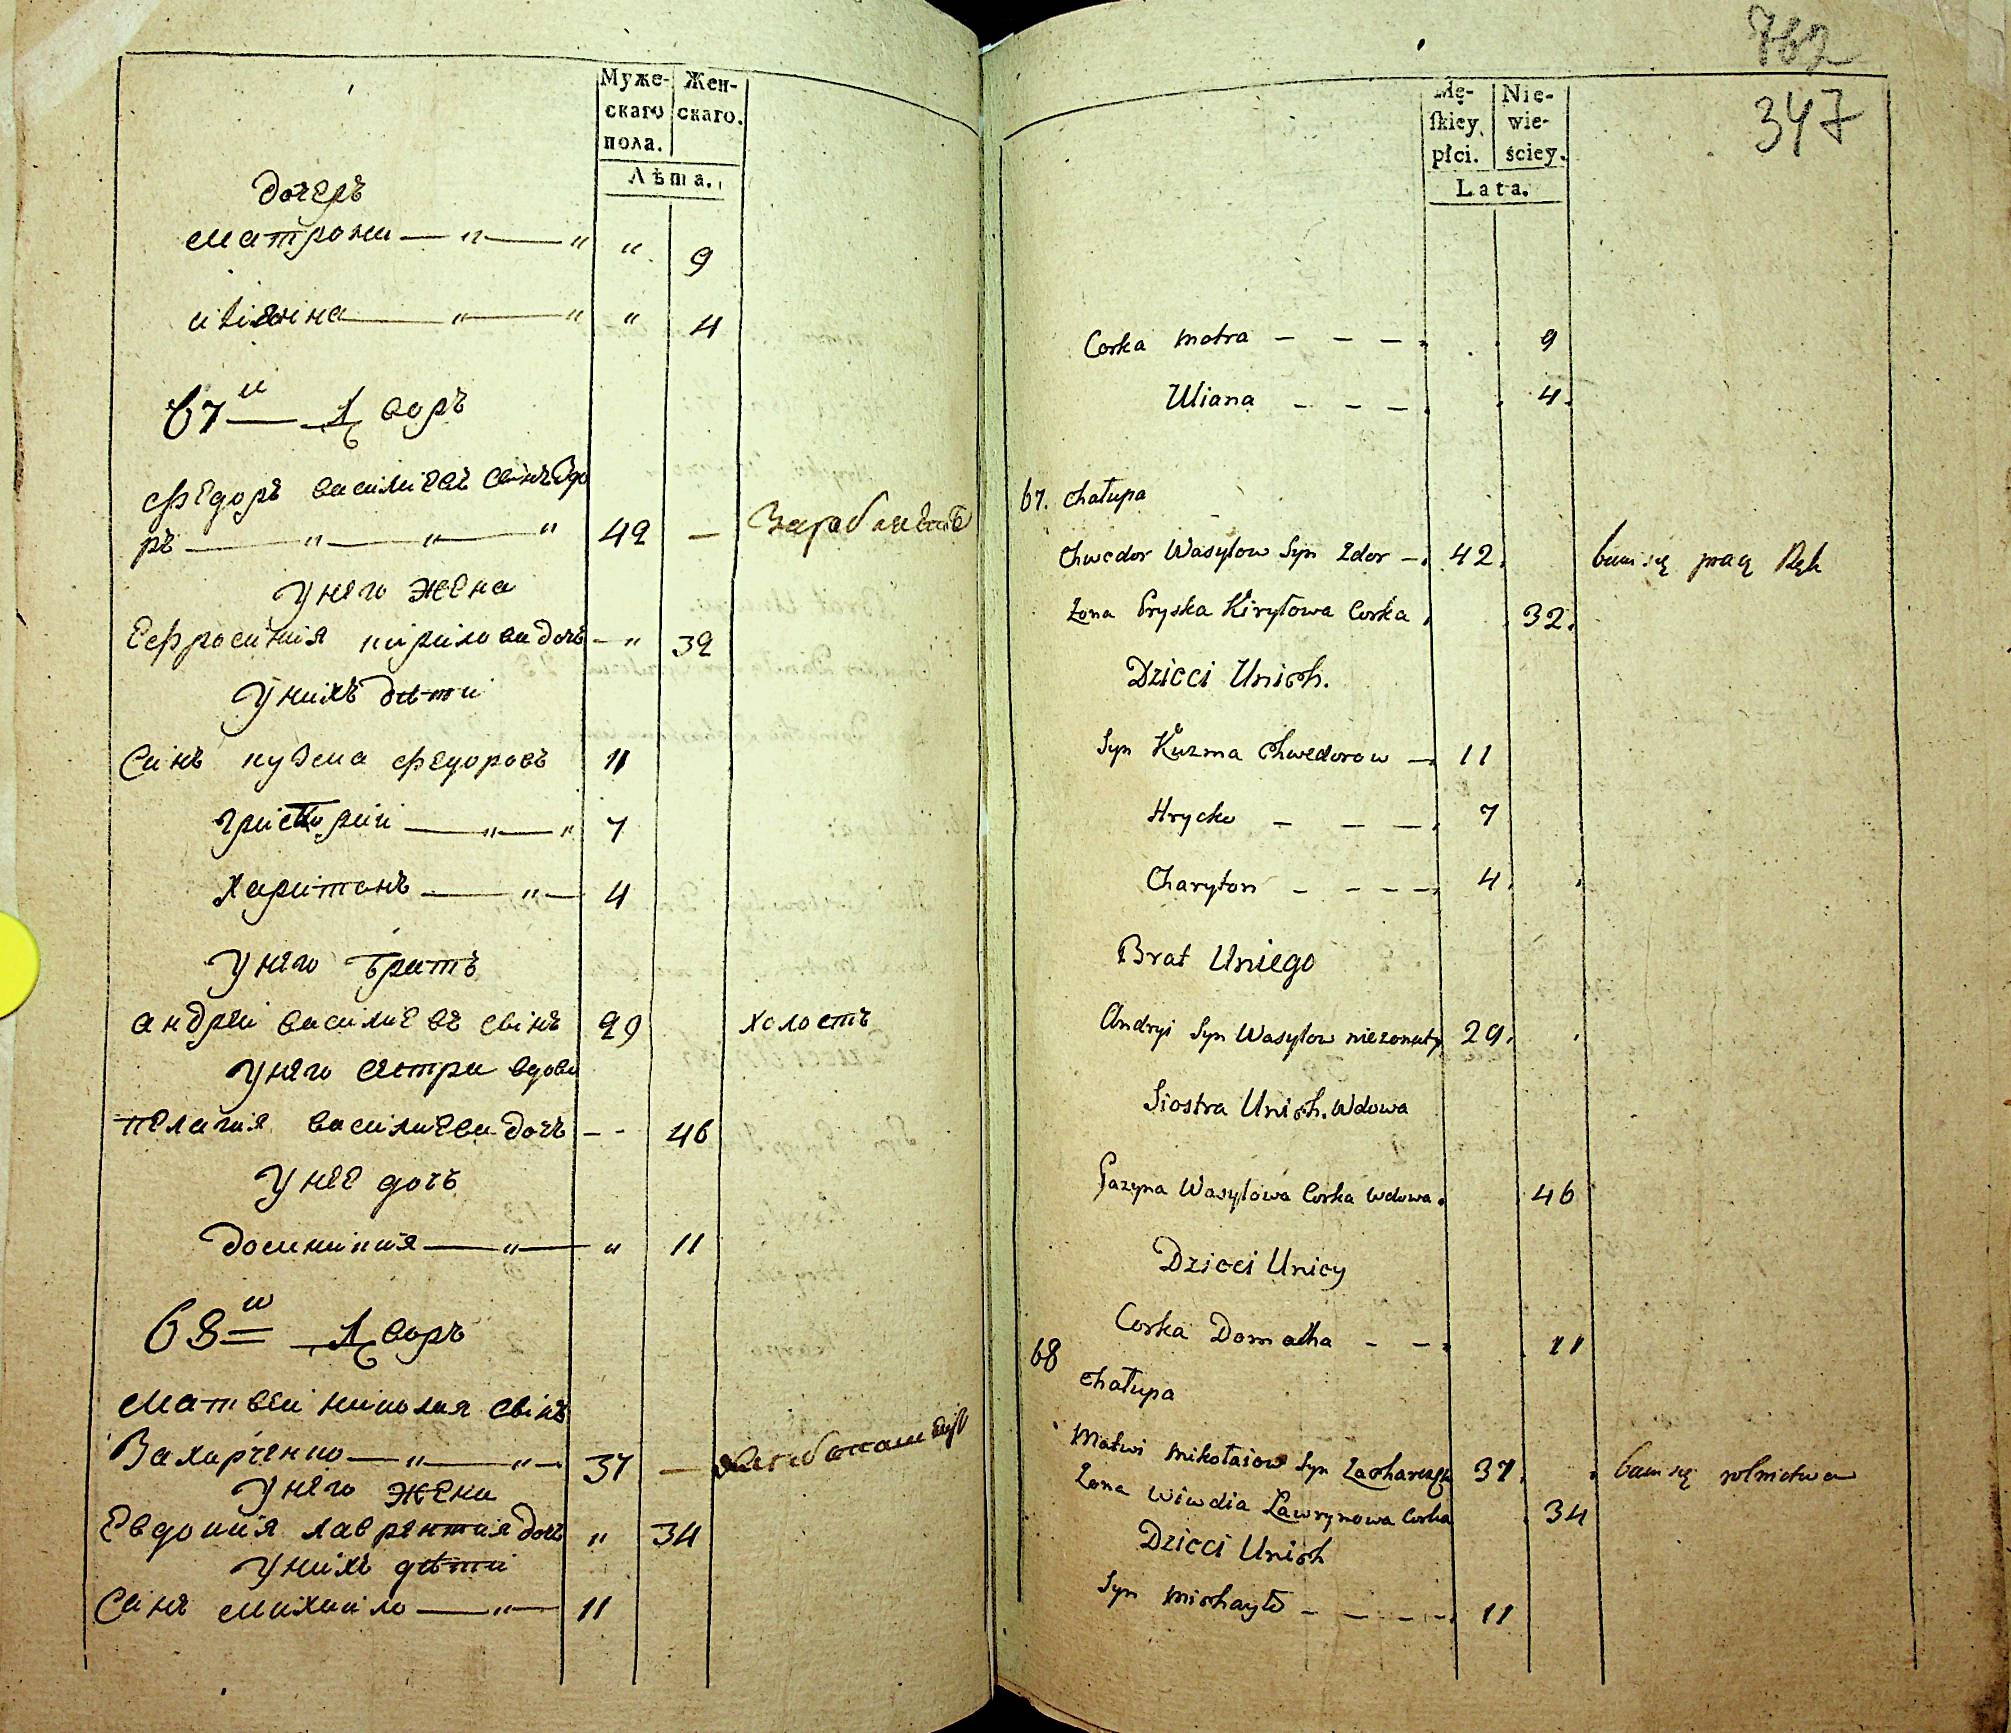 Муже- Жен-
скаго скаго.
пола.
Лѣта.
дочеръ
Матрона — " — " " 9
" 4
67й Дворъ
Федоръ василиевъ свінъ Здо
ръ — " — " — " 42 —
У него жена
Ефросиния кирилова дочъ — " 32
У нихъ дѣти
Синъ кузма федоровъ 11
григорий — " — " 7
Харитонъ — " — 4
У него братъ
андрей василиевъ свінъ 29 холостъ
У него сестра вдова
пелагия василиева дочъ - - 46
У нее дочъ
домникия — " — " 11
68й Дворъ
Матвей николая свінъ
Захарченко — " — " — 37 —
У него жена
Евдокия лаврентия дочъ " 34
У нихъ дѣти
Синъ михайло — " — 11
762
347
Mę- Nie-
ſkiey wie-
płci. ściey.
Lata.
Corka Motra - - - 9
Uliana - - - 4.
67. Chałupa
Chwedor Wasylow Syn Zdor - 42. bawi się pracą Rąk
Zona Pryska Kiryłowa Corka 32.
Dzieci Unich.
Syn Kuzma Chwedorow - 11
Hrycko - - - 7
Charyton - - - - 4.
Brat Uniego
Andryi Syn Wasylow niezonaty 29.
Siostra Unich. Wdowa
Wasylowa Corka wdowa. 46
Dzieci Unicy
Corka Domacha - - 11
68
Chałupa
Matwi Mikołaiow Syn 37. bawi się rolnictwem
Zona Wiwdia Ławrynowa Corka 34
Dzieci Unich
Syn Michayło - - - - 11